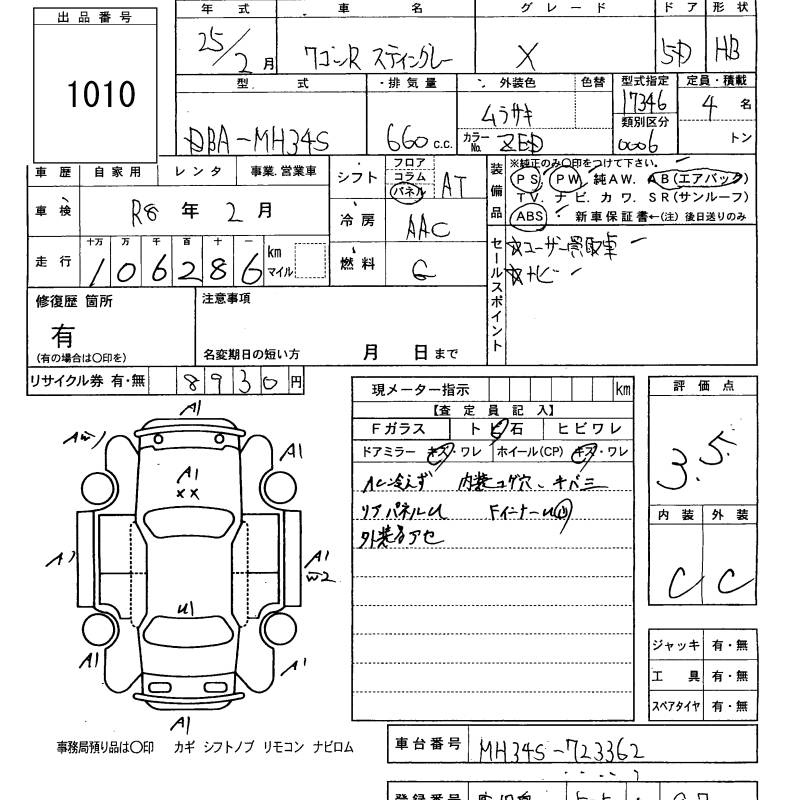 出品番号
1010
年式 車名 グレード ドア 形状
25/2月 ワゴンR スティングレー X 5D HB
型式 排気量 外装色 色替 型式指定 定員・積載
DBA-MH34S 660 c.c. ムラサキ 17346 4名
カラーNo. ZED 類別区分 0006 トン
車歴 自家用 レンタ 事業.営業車
車検 R8年2月
走行 十万 万 千 百 十 一 km マイル
106286
シフト フロア コラム パネル AT
冷房 AAC
燃料 G
装備品
※純正のみ○印をつけて下さい。
PS PW 純AW. AB(エアバック)
TV. ナビ. カワ. SR(サンルーフ)
ABS 新車保証書←(注) 後日送りのみ
セールスポイント
☆ユーザー買取車
☆ナビ
修復歴 箇所
有
(有の場合は○印を)
注意事項
名変期日の短い方 月 日まで
リサイクル券 有・無 8930円
現メーター指示 km
【査定員記入】
Fガラス トビ石 ヒビワレ
ドアミラー キズ・ワレ ホイール(CP) キズ・ワレ
AC冷えず 内装コゲ穴、キバミ
リアパネルU FインナーU
外装色アセ
評価点
3.5
内装 外装
C C
ジャッキ 有・無
工具 有・無
スペアタイヤ 有・無
A1
A1
A1
××
A1
A1
W2
U1
A1
A1
A1
事務局預り品は○印 カギ シフトノブ リモコン ナビロム
車台番号 MH34S-723362
登録番号